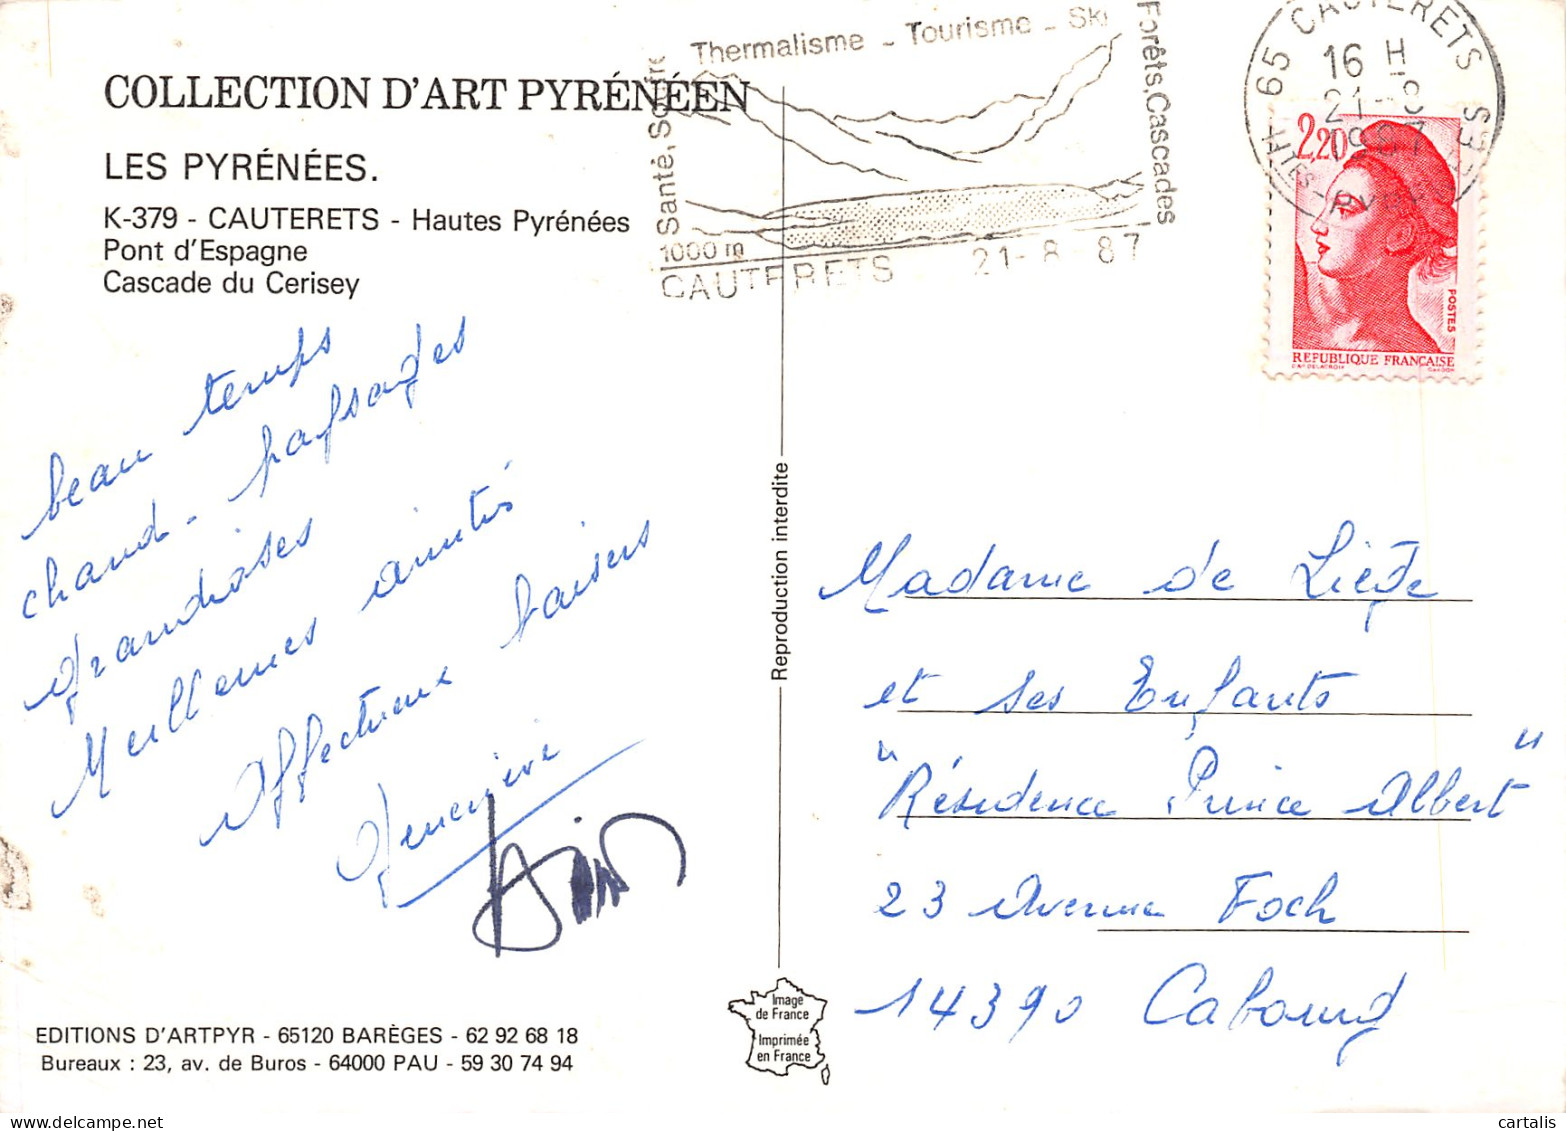 COLLECTION D'ART PYRÉNÉEN
LES PYRÉNÉES.
K-379 - CAUTERETS - Hautes Pyrénées
Pont d'Espagne
Cascade du Cerisey
beau temps
chaud - paysages
grandioses
Meilleures amitiés
Affectueux baisers
Geneviève
EDITIONS D'ARTPYR - 65120 BARÈGES - 62 92 68 18
Bureaux : 23, av. de Buros - 64000 PAU - 59 30 74 94
Reproduction interdite
Image
de France
Imprimée
en France
Thermalisme - Tourisme - Ski
Santé,
Forêts, Cascades
1000 m
CAUTERETS 21-8-87
65 CAUTERETS
16 H
21-8
1987
HTES-PYRENEES
2,20
POSTES
REPUBLIQUE FRANÇAISE
Madame de Liège
et ses Enfants
"Résidence Prince Albert"
23 Avenue Foch
14390 Cabourg
cartalis